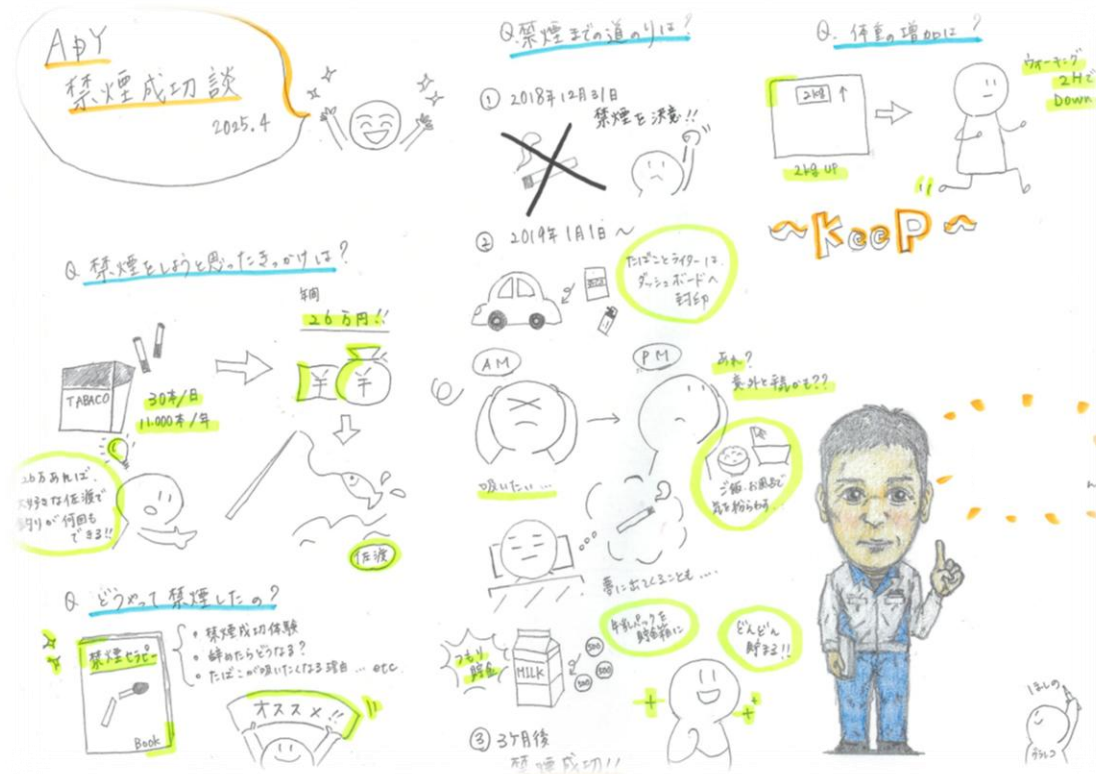 APY
禁煙成功談
2025.4
Q. 禁煙をしようと思ったきっかけは?
年間
26万円!!
TABACO
30本/日
11,000本/年
¥
¥
26万あれば、
大好きな佐渡で
釣りが何回も
できる!!
佐渡
Q. どうやって禁煙したの?
禁煙セラピー
Book
・禁煙成功体験
・辞めたらどうなる?
・たばこが吸いたくなる理由…etc
オススメ!!
Q.禁煙までの道のりは?
① 2018年12月31日
禁煙を決意!!
② 2019年1月1日~
たばことライターは
ダッシュボードへ
封印
AM
吸いたい…
PM
あれ?
意外と平気かも??
ご飯・お風呂で
気を紛らわす
夢に出てくることも….
つもり
貯金
MILK
500
500
500
牛乳パックを
貯金箱に
どんどん
貯まる!!
③ 3ヶ月後
禁煙成功!!
Q. 体重の増加は?
2kg ↑
2kg UP
ウォーキング
2Hで
Down
~KeeP~
ほしの